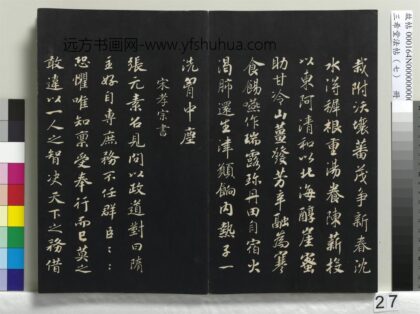 故帖 000164N00000000
三希堂法帖（七） 冊
远方书画网-www.yfshuhua.com
栽附沃壤蕃茂争新春沈
水浔穉根重湯養陳新投
以東阿清和以北海醇崖蜜
助甘冷山薑發芳辛融為寒
食餳嚥作瑞露珎丹田自宿火
渴肺還生津願餉内熱子一
洗胷中塵
宋孝宗書
張元素名見問以政道對曰隋
主好自專庶務不任群臣
恐懼唯知禀受奉行而已莫之
敢違以一人之智决天下之務借
27